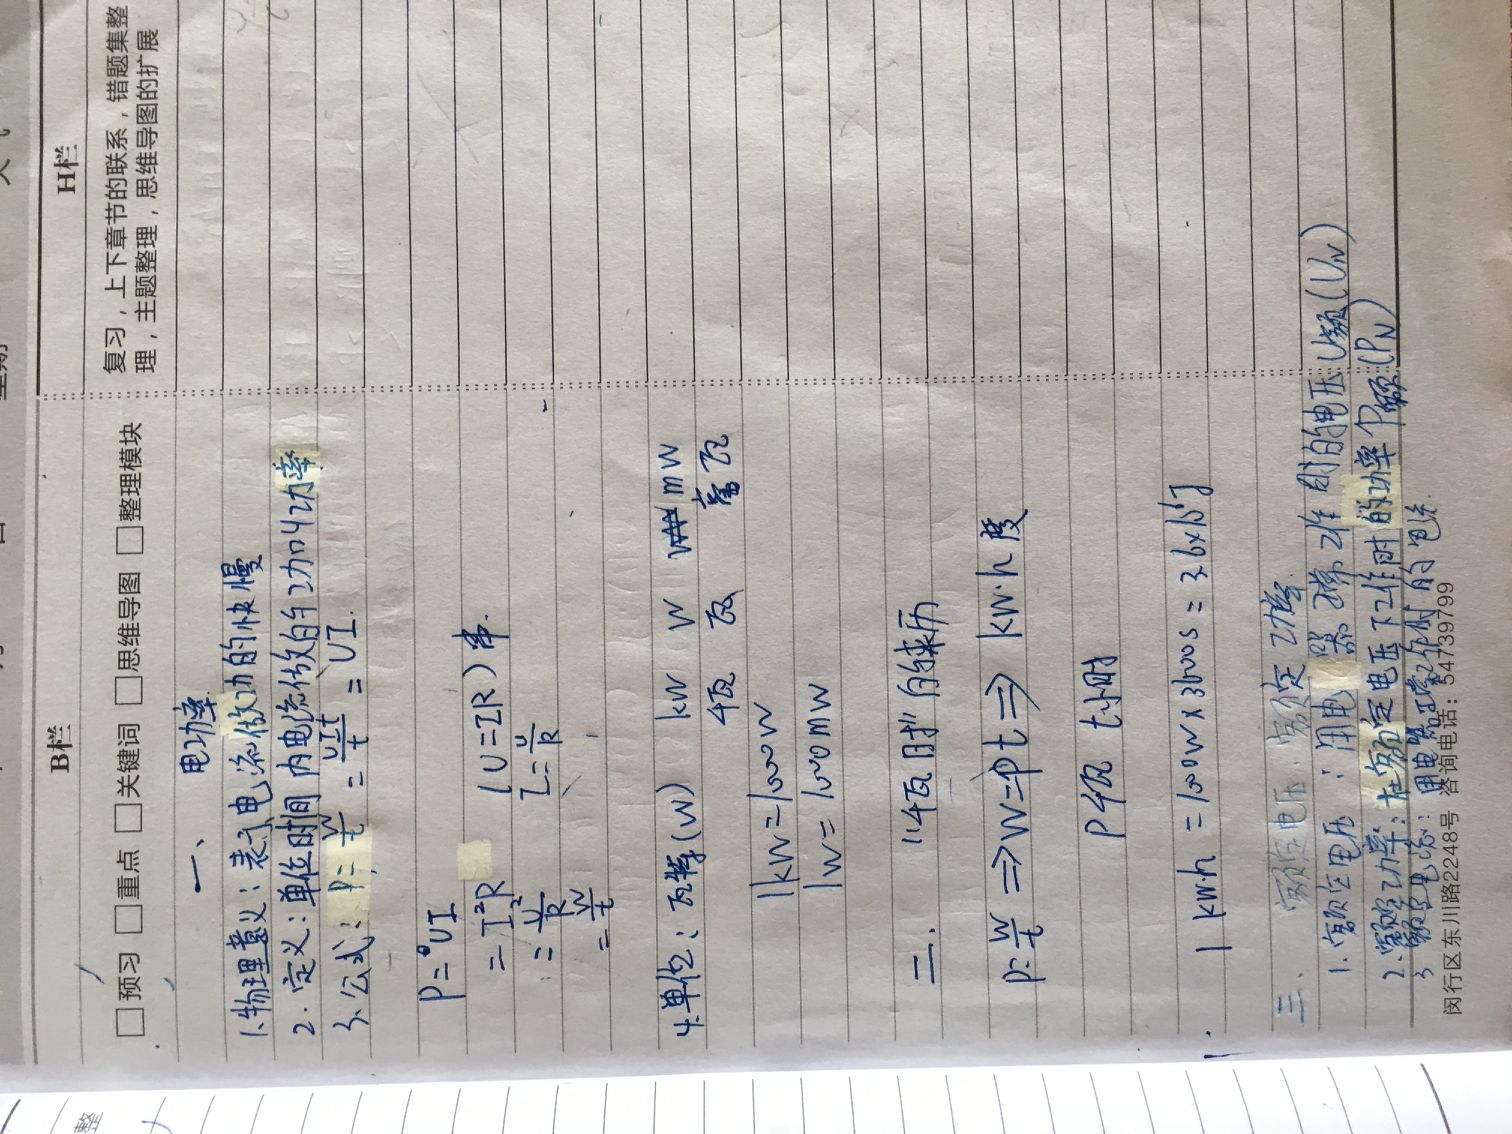 B栏
H栏
□预习 □重点 □关键词 □思维导图 □整理模块
复习，上下章节的联系，错题集整
理，主题整理，思维导图的扩展
一、 电功率
1.物理意义：表示电流做功的快慢
2.定义：单位时间内电流做的功叫功率
3.公式：P=W/t=UIt/t=UI.
P=UI
=I²R (U=IR)串.
=U²/R I=U/R
=W/t
4.单位：瓦特(W) kW W mW
千瓦 瓦 毫瓦
1kW=1000W
1W=1000mW
二. "千瓦时"的来历
P=W/t ⇒W=Pt⇒ kW·h 度
P千瓦 t小时
1 kW·h =1000W×3600s=3.6×10⁶J
三. 额定电压.额定功率.
1.额定电压：用电器正常工作时的电压U额(UN)
2.额定功率：在额定电压下工作时的功率P额(PN)
3 额定电流：用电器正常工作时的电流.
闵行区东川路2248号 咨询电话：54739799
整